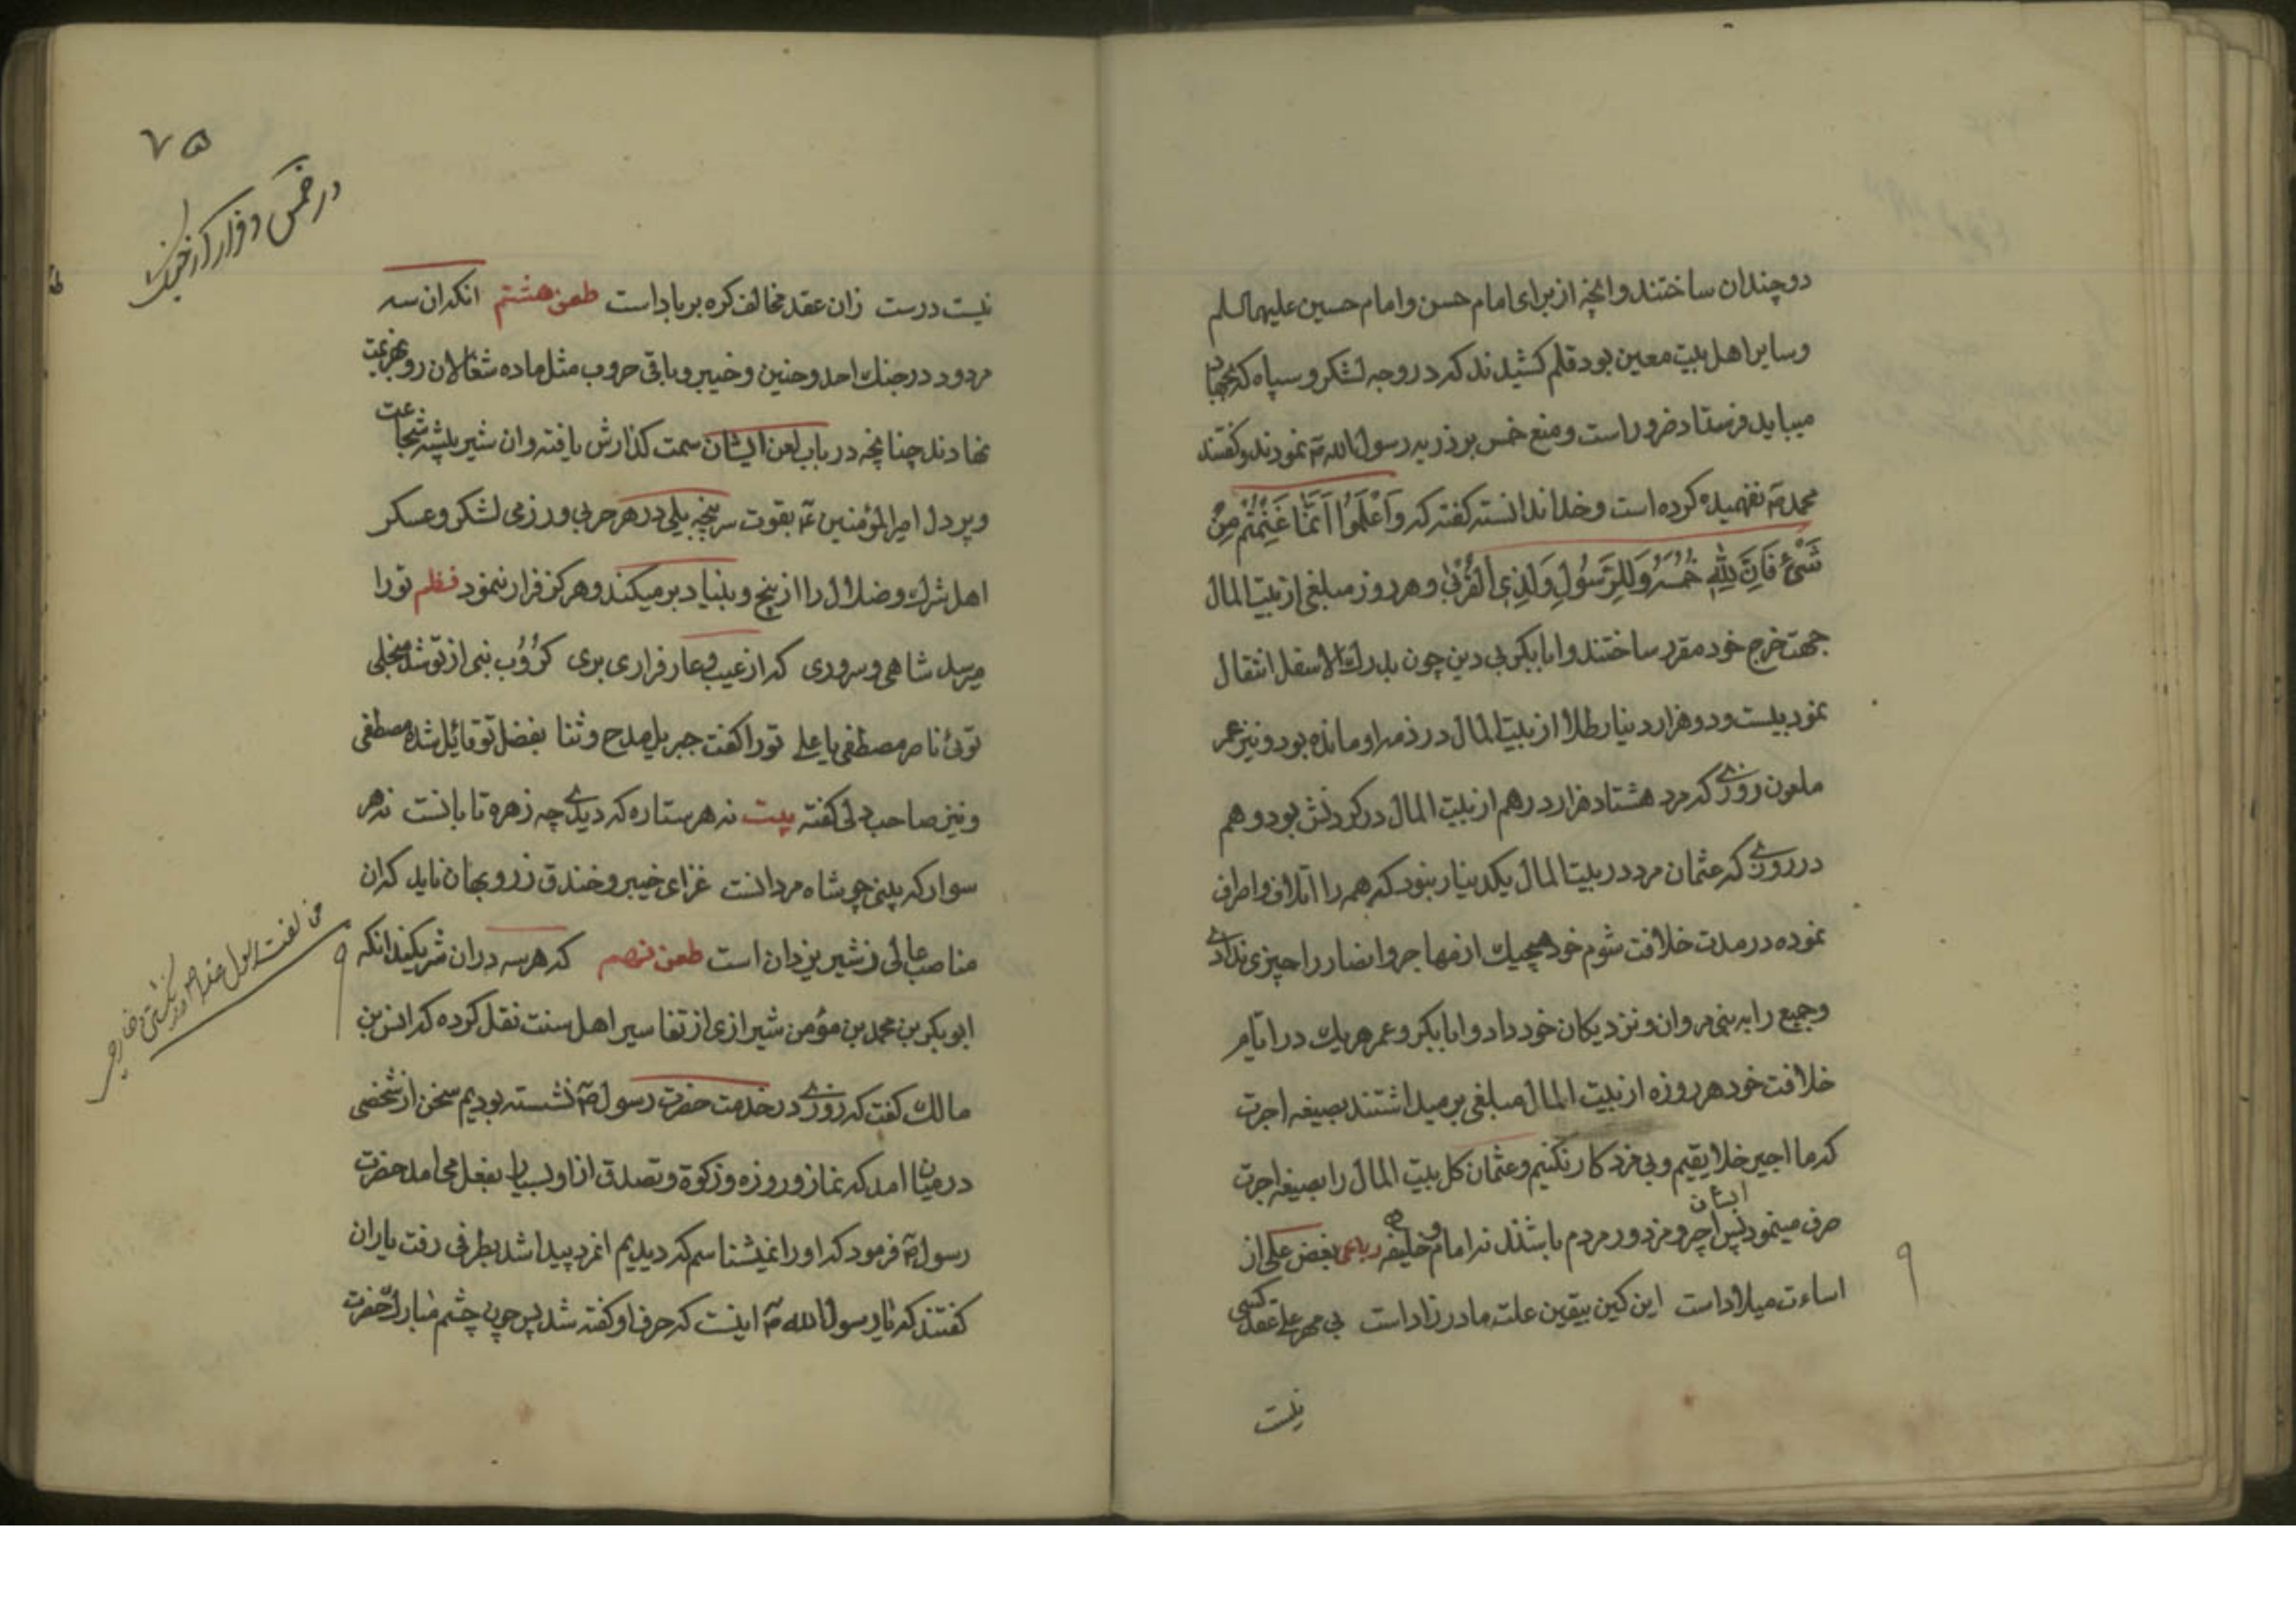 دو چندان ساختند و انچه از برای امام حسن و امام حسین علیهما السلم
و سایر اهل بیت معین بود قلم کشیدند که در وجه لشکر و سپاه که بجهاد
میباید فرستاد ضرور است و منع خمس بر ذریه رسول الله ص نمودند و کفتند
محمد ص نفهمیده کرده است و خدا ندانسته کفته که وَاعْلَمُوا اَنَّمَا غَنِمْتُمْ مِنْ
شَیْءٍ فَاَنَّ لِلّٰهِ خُمُسَهُ وَلِلرَّسُولِ وَلِذِی الْقُرْبٰی و هر روز مبلغی از بیت المال
جهت خرج خود مقرر ساختند و ابابکر بی دین چون بدرك الاسفل انتقال
نمود بیست و دو هزار دینار طلا از بیت المال در ذمه او مانده بود و نیز عمر
ملعون روزی که مرد هشتاد هزار درهم از بیت المال در کردنش بود و هم
در روزی که عثمان مرد در بیت المال یکدینار نبود که همه را اتلاف و اصراف
نموده در مدت خلافت شوم خود هیچیك از مهاجر و انصار را چیزی نداد
و جمیع را به بنی مروان و نزدیکان خود داد و ابابکر و عمر هر یك در ایام
خلافت خود هر روزه از بیت المال مبلغی بر میداشتند بصیغه اجرت
که ما اجیر خلایقیم و بی مزد کار نکنیم و عثمان کل بیت المال را بصیغه اجرت
صرف مینمود پس ایشان اجیر و مزدور مردم باشند نه امام و خلیفه رباعی بغض علی از
اساءت میلاد است این کین بیقین علت مادر زاد است بی مهر علی عقد کسی
نیست
۷۵
در خمس و فرار کردن
نیست درست زان عقد مخالف کره بر باد است طعن هشتم انکه ان سه
مردود در جنك احد و حنین و خیبر و باقی حروب مثل ماده شغالان رو بهزیمت
نهادند چنانچه در باب لعن ایشان سمت کذارش یافته و ان شیر بیشه شجاعت
و پر دل امیر المؤمنین ع بقوت سر پنجه یلی در هر حربی و رزمی لشکر و عسکر
اهل شرك و ضلال را از بیخ و بنیاد بر میکند و هرکز فرار ننمود نظم تو را
میرسد شاهی و سروری که از عیب و عار فراری بری کرُوب نبی از تو شد منجلی
توئی ناصر مصطفی یا علی تو را کفت جبریل مدح و ثنا بفضل تو قائل شده مصطفی
و نیز صاحب دلی کفته بیت نه هر ستاره که دیدی چه زهره تابانست نه هر
سوار که بینی چو شاه مردانست غزای خیبر و خندق ز روبهان ناید که ان
مناصب عالی ز شیر یزدان است طعن نهم که هر سه در ان شریکند انکه
ابو بکر بن محمد بن مؤمن شیرازی از تفاسیر اهل سنت نقل کرده که انس بن
مالك کفت که روزی در خدمت حضرت رسول ص نشسته بودیم سخن از شخصی
در میان امد که نماز و روزه و زکوة و تصدق از او بسیار بفعل می امد حضرت
رسول ص فرمود که او را نمیشناسم که دیدیم انمرد پیدا شد بطرفی رفت یاران
کفتند که یا رسول الله ص اینست که حرف او کفته شد پس چون چشم مبارك حضرت